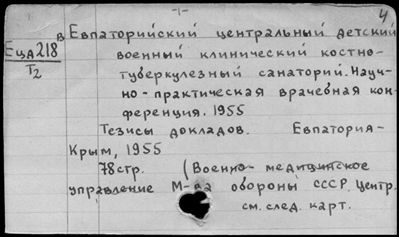 -1-
4
в Евпаторийский центральный детский
Ецд218
Т2
военный клинический костно-
туберкулезный санаторий. Науч-
но-практическая врачебная кон-
ференция. 1955
Тезисы докладов. Евпатория-
Крым, 1955
78стр. (Военно-медицинское
управление М-ва обороны СССР. Центр.
см. след. карт.